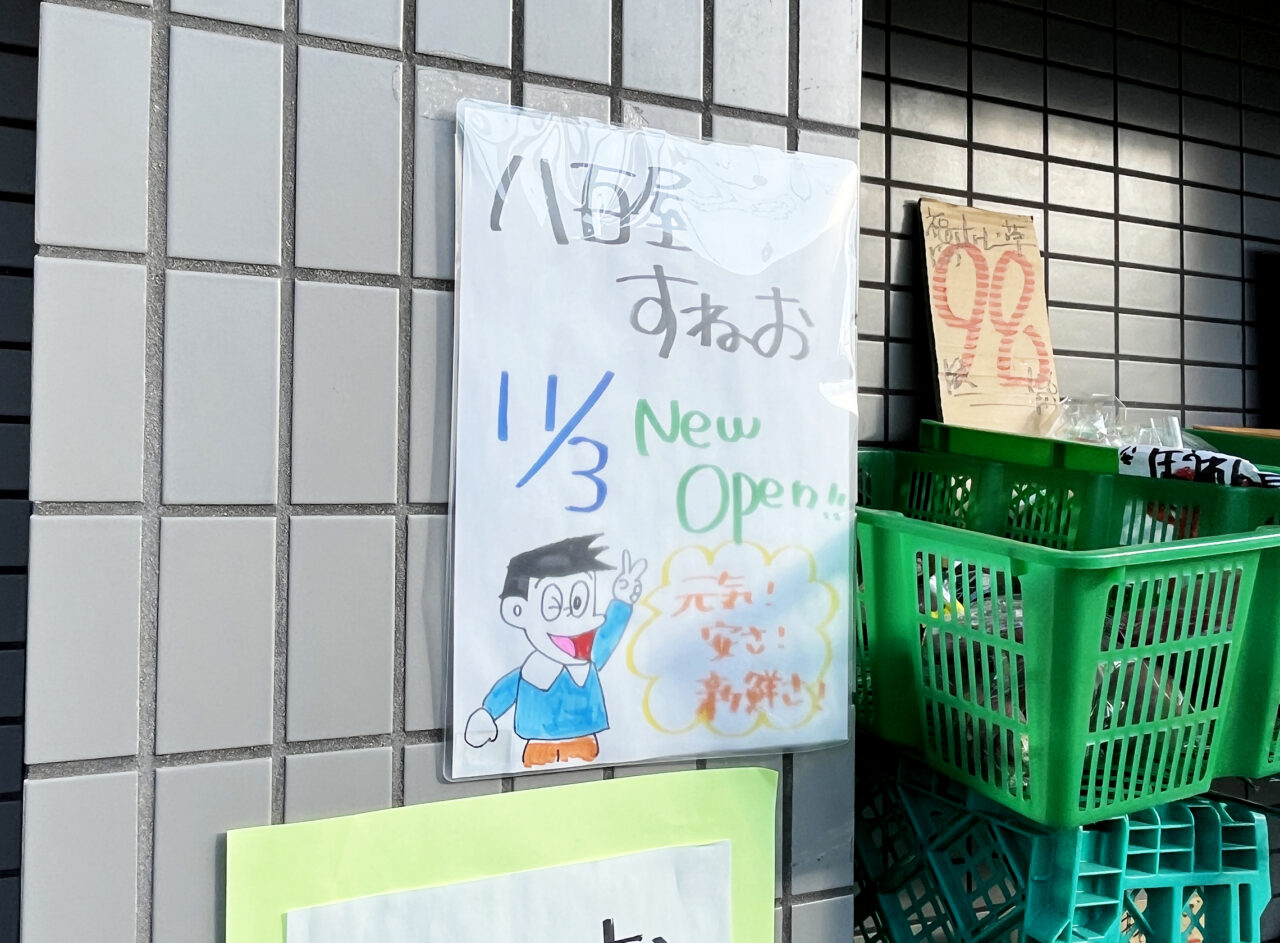 八百屋
すねお
11/3
New
Open!!
元気!
安さ!
新鮮さ!
98